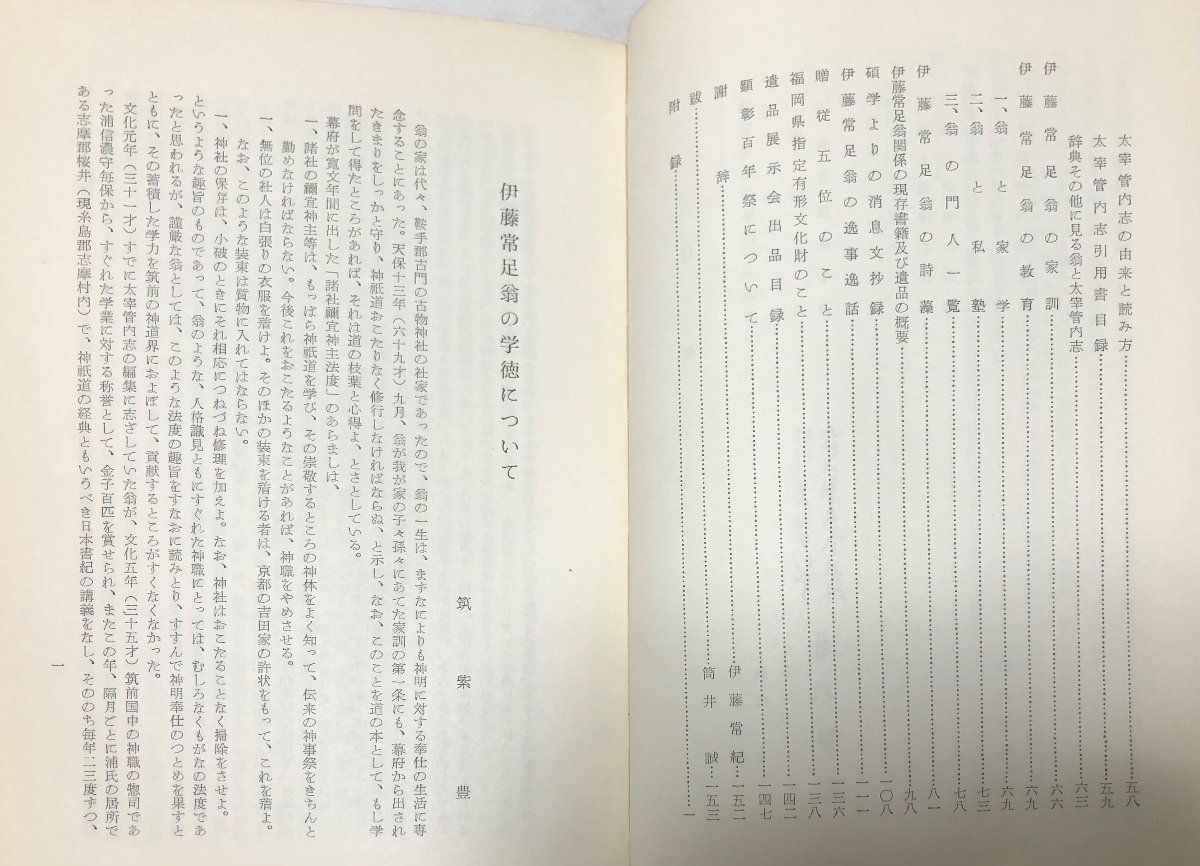 太宰管内志の由来と読み方……五八
太宰管内志引用書目録……五九
辞典その他に見る翁と太宰管内志……六三
伊藤常足翁の家訓……六六
伊藤常足翁の教育……六九
一、翁と家学……六九
二、翁と私塾……七三
三、翁の門人一覧……七八
伊藤常足翁の詩藻……八一
伊藤常足翁関係の現存書籍及び遺品の概要……九八
碩学よりの消息文抄録……一〇八
伊藤常足翁の逸事逸話……一一一
贈従五位のこと……一三六
福岡県指定有形文化財のこと……一三八
遺品展示会出品目録……一四二
顕彰百年祭について……一四七
謝辞……伊藤常紀…一五二
跋……筒井誠…一五三
附録……一
伊藤常足翁の学徳について
筑紫豊
翁の家は代々、鞍手郡古門の古物神社の社家であったので、翁の一生は、まずなによりも神明に対する奉仕の生活に専
念することにあった。天保十三年(六十九才)九月、翁が我が家の子々孫々にあてた家訓の第一条にも、幕府から出され
たきまりをしっかと守り、神祇道おこたりなく修行しなければならぬ、と示し、なお、このことを道の本として、もし学
問をして得たところがあれば、それは道の枝葉と心得よ、とさとしている。
幕府が寛文年間に出した「諸社禰宜神主法度」のあらましは、
一、諸社の禰宜神主等は、もっぱら神祇道を学び、その崇敬するところの神体をよく知って、伝来の神事祭をきちんと
勤めなければならない。今後これをおこたるようなことがあれば、神職をやめさせる。
一、無位の社人は白張りの衣服を着けよ。そのほかの装束を着ける者は、京都の吉田家の許状をもって、これを着よ。
なお、このような装束は質物に入れてはならない。
一、神社の保存は、小破のときにそれ相応につねづね修理を加えよ。なお、神社はおこたることなく掃除をさせよ。
というような趣旨のものであって、翁のような、人格識見ともにすぐれた神職にとっては、むしろなくもがなの法度であ
ったと思われるが、謹厳な翁としては、このような法度の趣旨をすなおに読みとり、すすんで神明奉仕のつとめを果すと
ともに、その蓄積した学力を筑前の神道界におよぼして、貢献するところがすくなくなかった。
文化元年(三十一才)すでに太宰管内志の編集に志ざしていた翁が、文化五年(三十五才)筑前国中の神職の惣司であ
った浦信濃守毎保から、すぐれた学業に対する称誉として、金子百匹を賞せられ、またこの年、隔月ごとに浦氏の居所で
ある志摩郡桜井(現糸島郡志摩村内)で、神祇道の経典ともいうべき日本書紀の講義をなし、そののち毎年二三度ずつ、
一